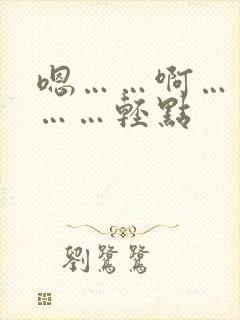 嗯……啊…
……輕點
劉鷺鷺